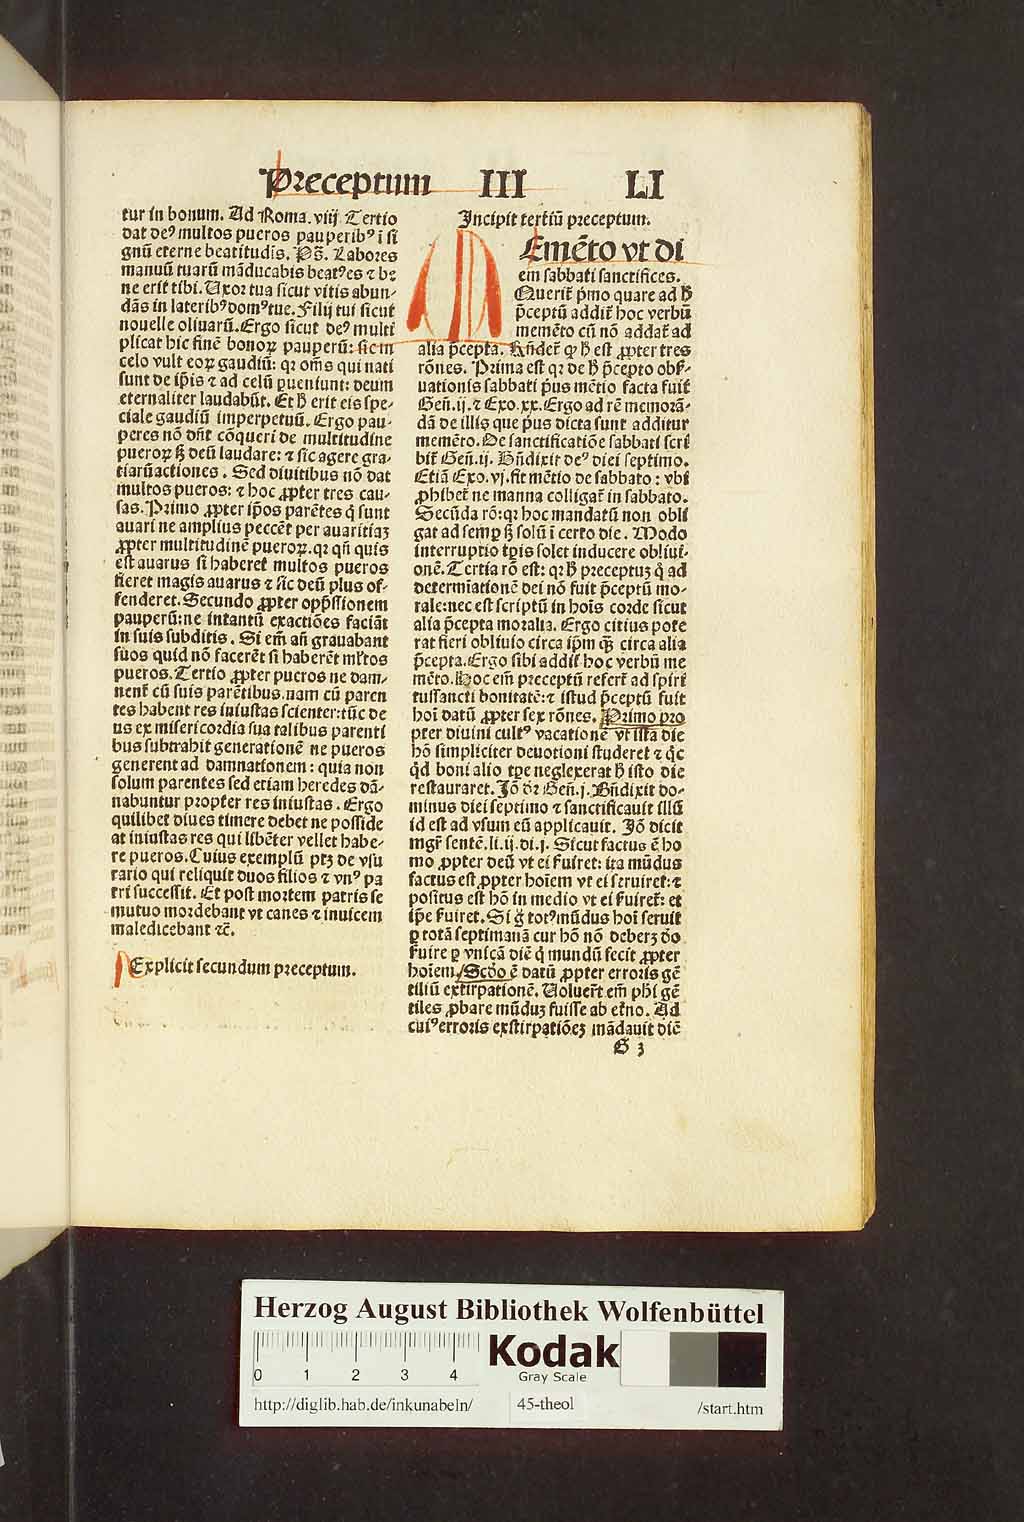 Preceptum III LI
tur in bonum. Ad Roma. viij Tertio
dat deꝰ multos pueros pauperibꝰ ī si
gnū eterne beatitudis. Ps̄. Labores
manuū tuarū māducabis beatꝰes ⁊ be
ne erit tibi. Uxor tua sicut vitis abun-
dās in lateribꝰ domꝰ tue. Filij tui sicut
nouelle oliuarū. Ergo sicut deꝰ multi
plicat hic finē bonoꝝ pauperū: sic in
celo vult eoꝝ gaudiū: qꝛ om̄s qui nati
sunt de ip̄is ⁊ ad celū ꝑueniunt: deum
eternaliter laudabūt. Et ħ erit eis spe-
ciale gaudiū imperpetuū. Ergo pau-
peres nō dn̄t cōqueri de multitudine
pueroꝝ sꝫ deū laudare: ⁊ sic agere gra-
tiarū actiones. Sed diuitibus nō dat
multos pueros: ⁊ hoc ꝓpter tres cau-
sas. Primo ꝓpter ip̄os parētes q̄ sunt
auari ne amplius peccēt per auaritiaꝫ
ꝓpter multitudinē pueroꝝ. qꝛ qn̄ quis
est auarus si haberet multos pueros
fieret magis auarus ⁊ sic deū plus of-
fenderet. Secundo ꝓpter opp̄ssionem
pauperū: ne intantū exactiōes faciāt
in suis subditis. Si em̄ añ grauabant
suos quid nō facerēt si haberēt ml̄tos
pueros. Tertio ꝓpter pueros ne dam-
nent̄ cū suis parētibus. nam cū paren
tes habent res iniustas scienter: tūc de
us ex misericordia sua talibus parenti
bus subtrahit generationē ne pueros
generent ad damnationem: quia non
solum parentes sed etiam heredes dā-
nabuntur propter res iniustas. Ergo
quilibet diues timere debet ne posside
at iniustas res qui libēter vellet habe-
re pueros. Cuius exemplū ptꝫ de vsu
rario qui reliquit duos filios ⁊ vnꝰ pa
tri successit. Et post mortem patris se
mutuo mordebant vt canes ⁊ inuicem
maledicebant ⁊c̄.
Explicit secundum preceptum.
Incipit tertiū preceptum.
MEmēto vt di
em sabbati sanctifices.
Querit̄ p̄mo quare ad ħ
p̄ceptū addit̄ hoc verbū
memēto cū nō addat̄ ad
alia p̄cepta. Rn̄det̄ ꝙ ħ est ꝓpter tres
rōnes. Prima est qꝛ de ħ p̄cepto obſ̄-
uationis sabbati p̄us mētio facta fuit
Geñ. ij. ⁊ Exo. xx. Ergo ad rē memorā-
dā de illis que p̄us dicta sunt additur
memēto. De sanctificatiōe sabbati scri
bit̄ Geñ. ij. Bn̄dixit deꝰ diei septimo.
Etiā Exo. vj. fit mētio de sabbato: vbi
ꝓhibet̄ ne manna colligat̄ in sabbato.
Secūda rō: qꝛ hoc mandatū non obli
gat ad semꝑ sꝫ solū ī certo die. Modo
interruptio tp̄is solet inducere obliui-
onē. Tertia rō est: qꝛ ħ preceptuꝫ q̄ ad
determiationē dei nō fuit p̄ceptū mo-
rale: nec est scriptū in hoīs corde sicut
alia p̄cepta moralia. Ergo citius pote
rat fieri obliuio circa ip̄m qꝫ circa alia
p̄cepta. Ergo sibi addit̄ hoc verbū me
mēto. Hoc em̄ preceptū refert̄ ad spiri
tussancti bonitatē: ⁊ istud p̄ceptū fuit
hoī datū ꝓpter sex rōnes. Primo pro
pter diuini cultꝰ vacationē vt ista die
hō simpliciter deuotioni studeret ⁊ q̇c
q̇d boni alio tꝑe neglexerat ħ isto die
restauraret. Jō dr̄ Geñ. j. Bn̄dixit do-
minus diei septimo ⁊ sanctificauit illū
id est ad vsum eū applicauit. Jō dicit
mgr̄ sentē. li. ij. di. j. Sicut factus ē ho
mo ꝓpter deū vt ei ſ̄uiret: ita mūdus
factus est ꝓpter hoīem vt ei seruiret: ⁊
positus est hō in medio vt ei ſ̄uiret: et
ip̄e ſ̄uiret. Si g̊ totꝰ mūdus hoī seruit
ꝑ totā septimanā cur hō nō deberꝫ deo
ſ̄uire ꝑ vnicā diē q̇ mundū fecit ꝓpter
hoīem. Scd̄o ē datū ꝓpter erroris gē
tiliū extirpationē. Uoluer̄t em̄ phi gē
tiles ꝓbare mūduꝫ fuisse ab et̄no. Ad
cuiꝰ erroris exstirpatiōeꝫ mādauit diē
G 3
Herzog August Bibliothek Wolfenbüttel
0 1 2 3 4
Kodak
Gray Scale
http://diglib.hab.de/inkunabeln/ 45-theol /start.htm